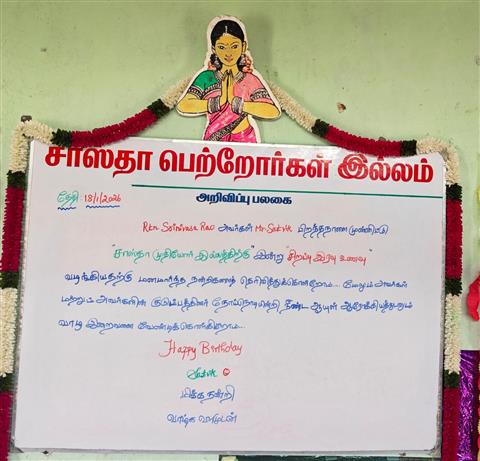 சாஸ்தா பெற்றோர்கள் இல்லம்
அறிவிப்பு பலகை
தேதி : 18/1/2026
Rtn Srinivasa Rao அவர்கள் Mr. Satvik பிறந்தநாளை முன்னிட்டு
"சாஸ்தா முதியோர் இல்லத்திற்கு" இன்று "சிறப்பு இரவு உணவு"
வழங்கியதற்கு மனமார்ந்த நன்றிகளைத் தெரிவித்துக்கொள்கிறோம்... மேலும் அவர்கள்
மற்றும் அவர்களின் குடும்பத்தினர் நோய்நொடியின்றி நீண்ட ஆயுள் ஆரோக்கியத்துடனும்
வாழ இறைவனை வேண்டிக்கொள்கிறோம்...
Happy Birthday
Satvik
மிக்க நன்றி
வாழ்க வளமுடன்